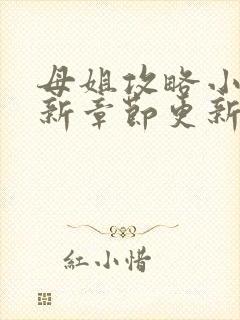 母姐攻略小
新章節更新
紅小惜